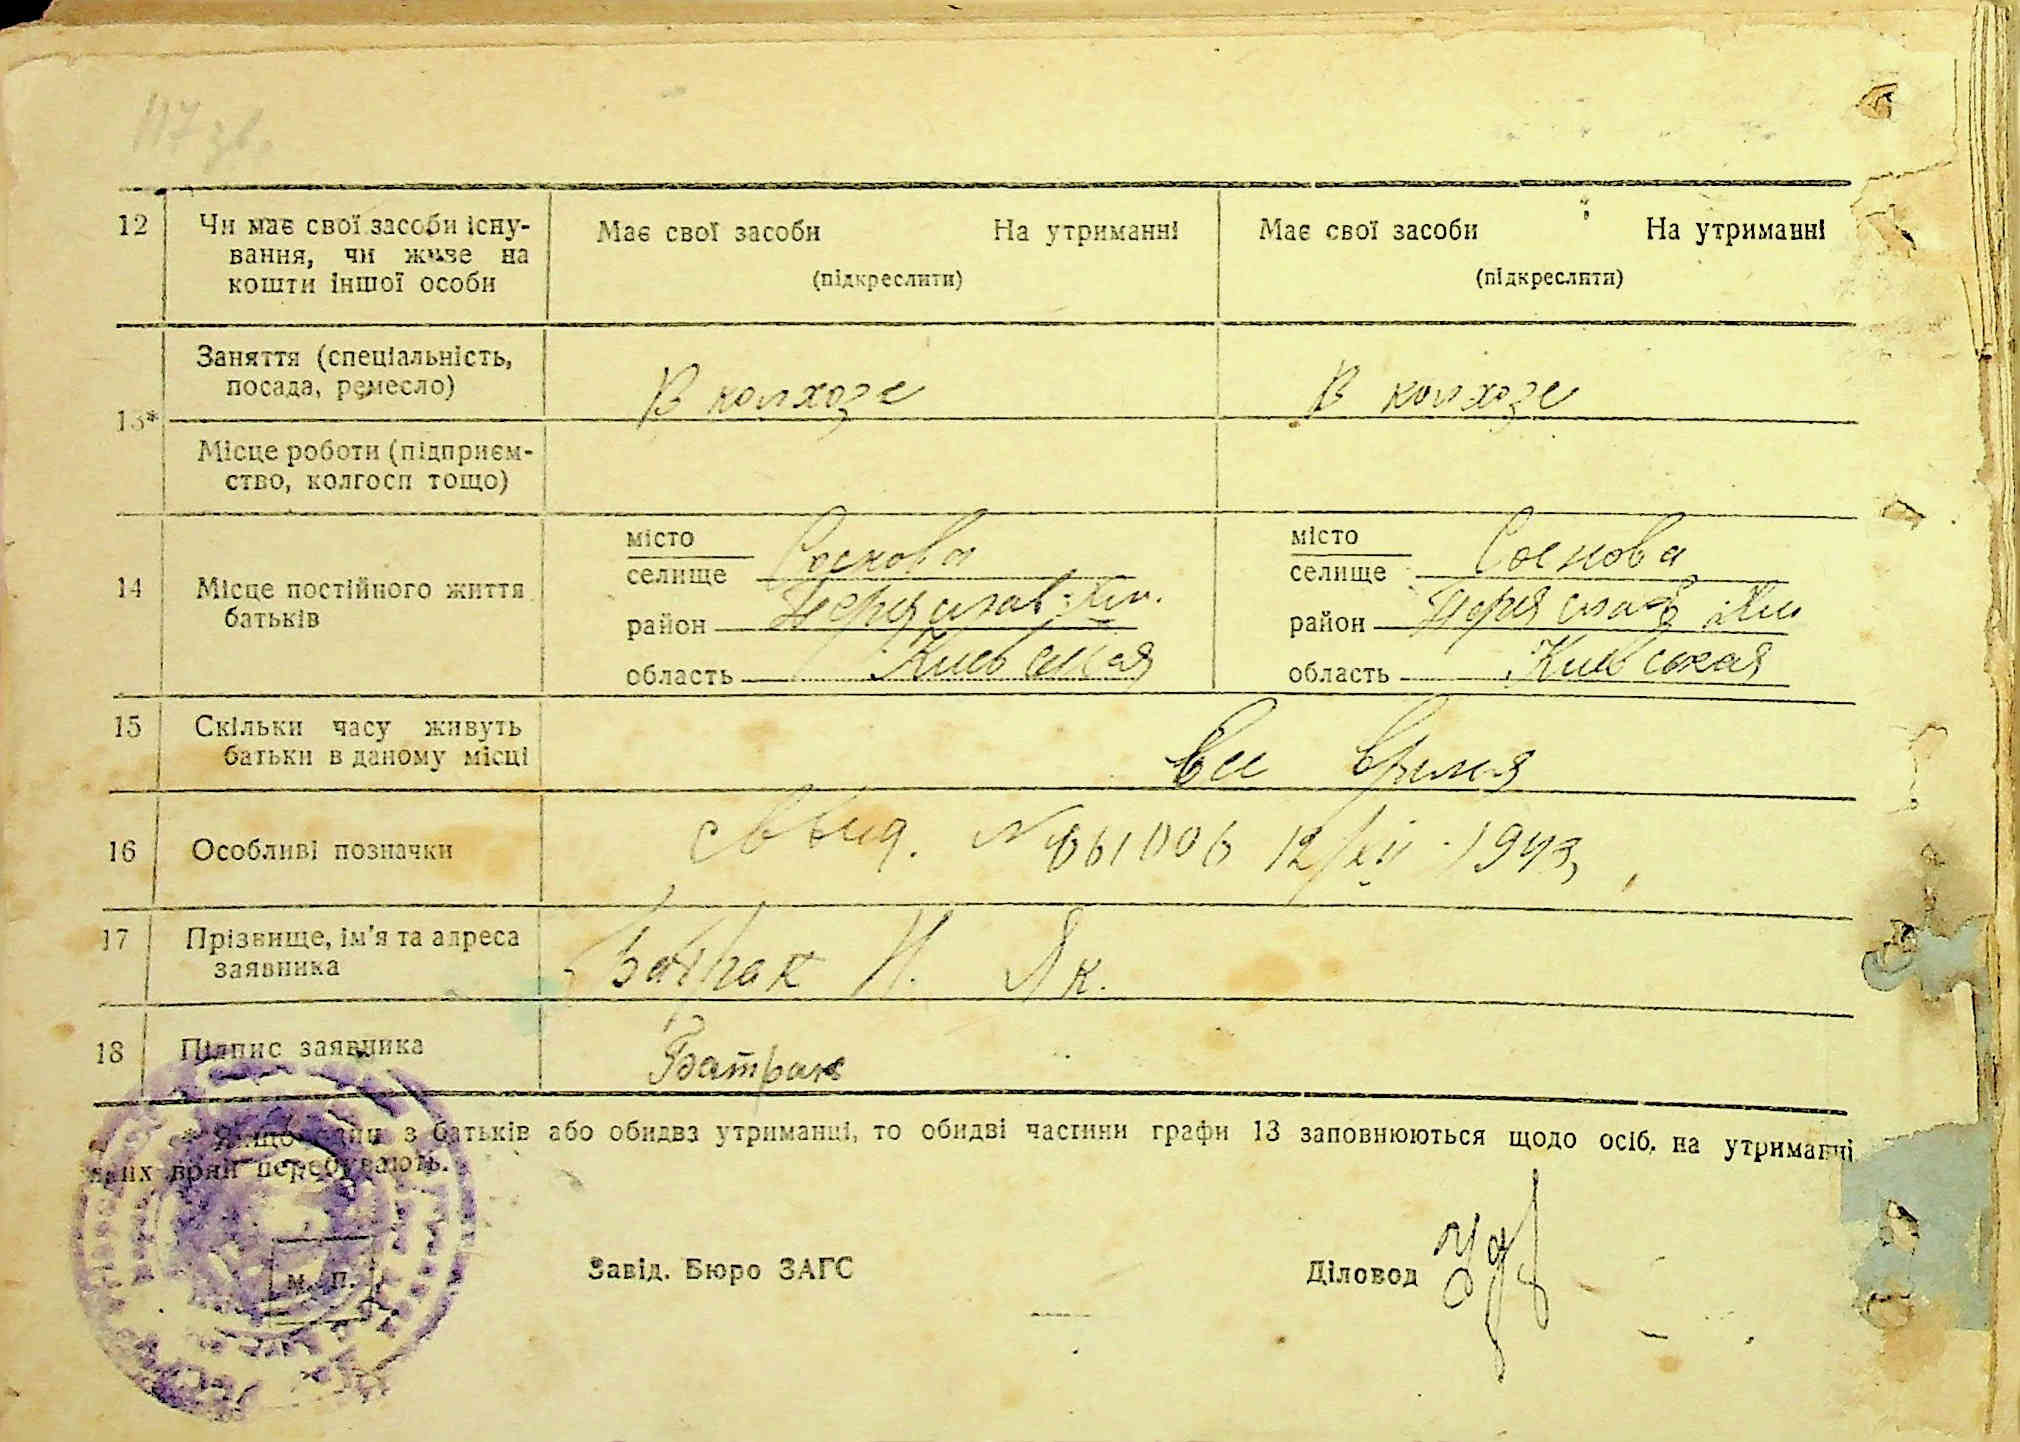 117 зв.
12 Чи має свої засоби існу- Має свої засоби На утриманні Має свої засоби На утриманні
вання, чи живе на (підкреслити) (підкреслити)
кошти іншої особи
Заняття (спеціальність,
посада, ремесло) В колхозе В колхозе
13*
Місце роботи (підприєм-
ство, колгосп тощо)
місто Соснова місто Соснова
селище селище
14 Місце постійного життя
батьків район Переяслав-Хм. район Переяслав-Хм
область Киевская область Киевская
15 Скільки часу живуть
батьки в даному місці Все время
16 Особливі позначки 12/XII 1943
17 Прізвище, ім'я та адреса
заявника Батрак И. Як.
18 Підпис заявника Батрак
* Якщо один з батьків або обидва утриманці, то обидві частини графи 13 заповнюються щодо осіб, на утриманні
яких вони перебувають.
м. п. Завід. Бюро ЗАГС Діловод